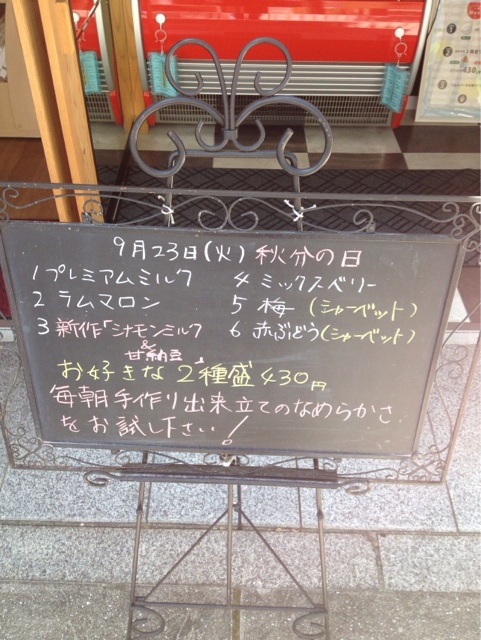 9月23日(火) 秋分の日
1 プレミアムミルク
2 ラムマロン
3 新作「シナモンミルク
&
甘納豆」
4 ミックスベリー
5 梅 (シャーベット)
6 赤ぶどう(シャーベット)
お好きな2種盛430円
毎朝手作り出来立てのなめらかさ
をお試し下さい!